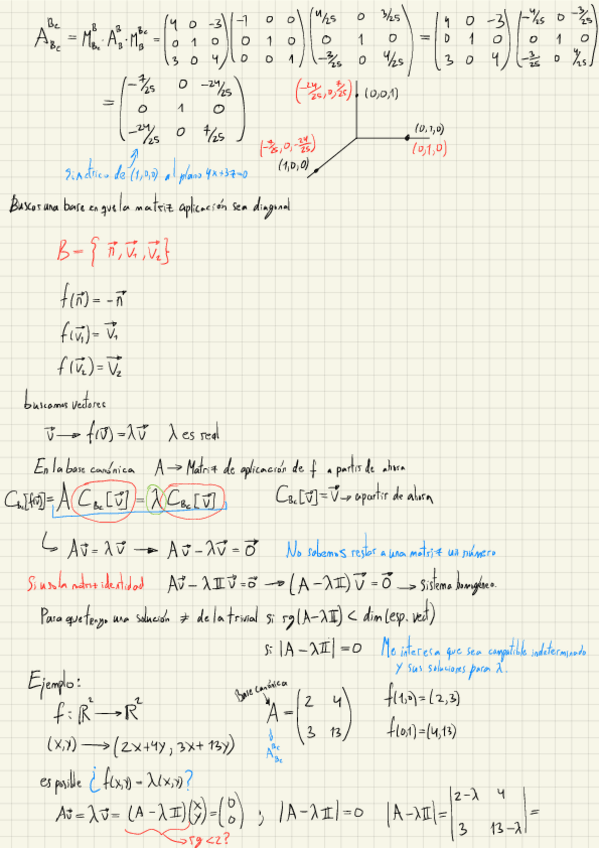 A_{Bc}^{Bc} = M_{Bc}^{B} · A_{B}^{B} · M_{B}^{Bc} = (4 0 -3; 0 1 0; 3 0 4) (-1 0 0; 0 1 0; 0 0 1) (4/25 0 3/25; 0 1 0; -3/25 0 4/25) = (4 0 -3; 0 1 0; 3 0 4) (-4/25 0 -3/25; 0 1 0; -3/25 0 4/25)
= (-7/25 0 -24/25; 0 1 0; -24/25 0 7/25)
(-24/25, 0, 7/25) (0,0,1)
(0,1,0)
(0,1,0)
(-7/25, 0, -24/25)
(1,0,0)
Simétrico de (1,0,0) al plano 4x+3z=0
Buscar una base en que la matriz aplicación sea diagonal
B = { n⃗, v⃗₁, v⃗₂ }
f(n⃗) = -n⃗
f(v⃗₁) = v⃗₁
f(v⃗₂) = v⃗₂
buscamos vectores
v⃗ → f(v⃗) = λv⃗ λ es real
En la base canónica A → Matriz de aplicación de f a partir de ahora
C_{Bc}[f(v)] = A C_{Bc}[v⃗] = λ C_{Bc}[v⃗] C_{Bc}[v⃗] = v⃗ → a partir de ahora
↳ Av⃗ = λv⃗ → Av⃗ - λv⃗ = 0⃗ No sabemos restar a una matriz un número
Si usa la matriz identidad Av⃗ - λIIv⃗ = 0⃗ → (A - λII)v⃗ = 0⃗ → Sistema homogéneo.
Para que tenga una solución ≠ de la trivial si rg(A - λII) < dim(esp. vect)
si |A - λII| = 0 Me interesa que sea compatible indeterminado
y sus soluciones para λ.
Ejemplo:
f: ℝ² → ℝ²
(x,y) → (2x+4y, 3x+13y)
Base canónica
A = (2 4; 3 13)
A_{Bc}^{Bc}
f(1,0) = (2,3)
f(0,1) = (4,13)
es posible ¿f(x,y) = λ(x,y)?
Av⃗ = λv⃗ = (A - λII)(x; y) = (0; 0) ; |A - λII| = 0 |A - λII| = |2-λ 4; 3 13-λ| =
rg<2?